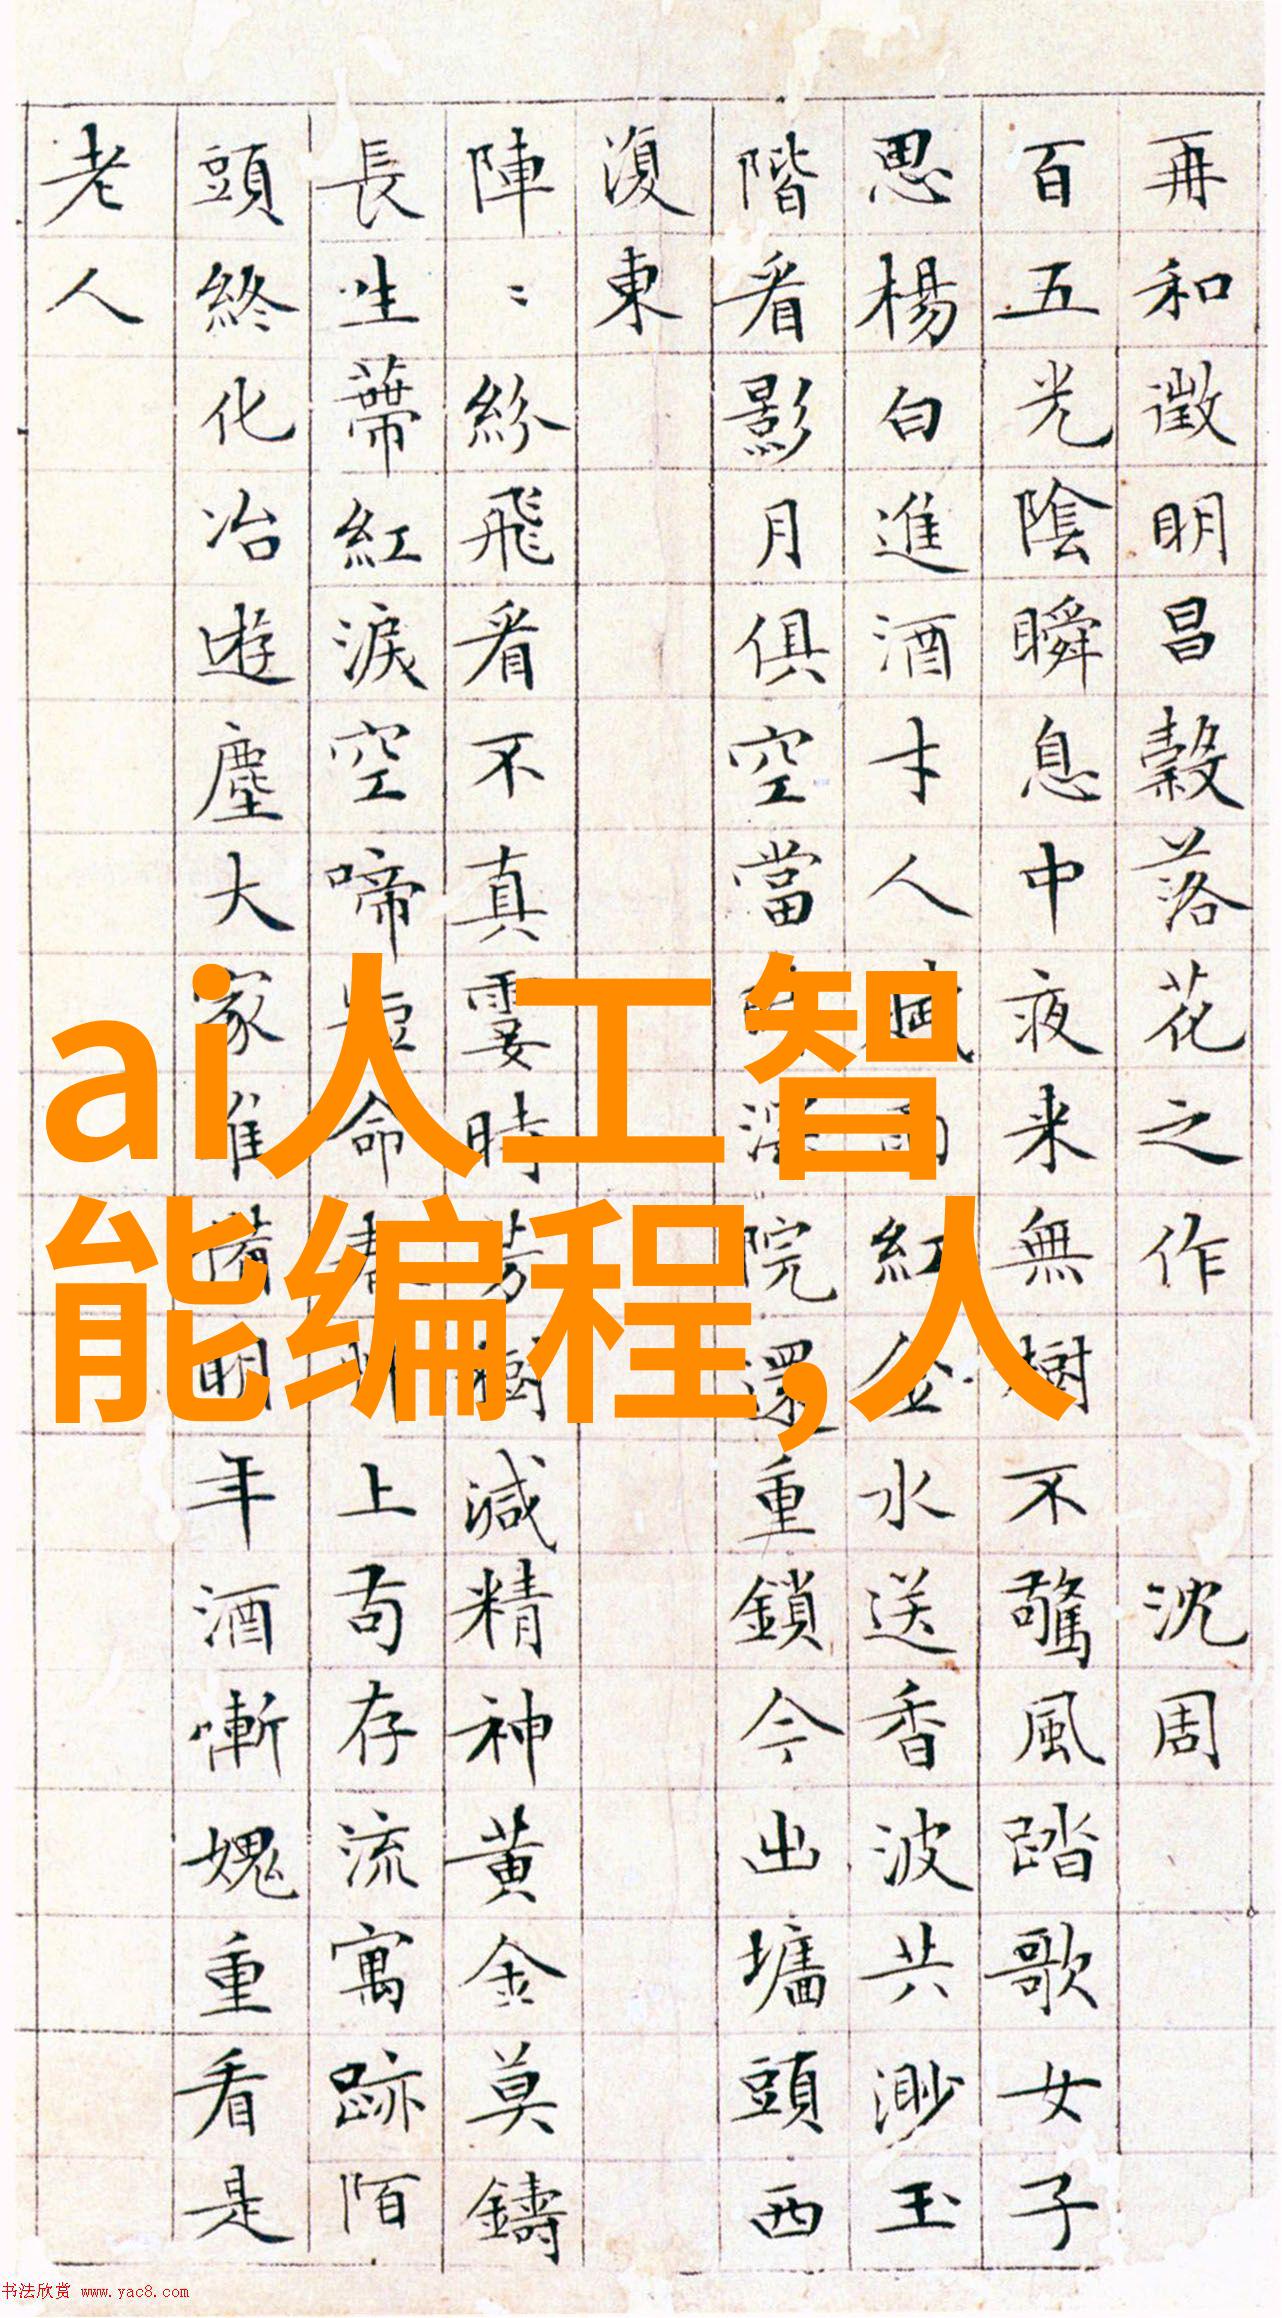 再和徵明昌穀落花之作 沈周
百五光陰瞬息中夜来無樹不驚風踏歌女子
思楊白進酒才人賦雨紅金水送香波共渺玉
階看影月俱空當深院還重鎖今出墻頭西
復東
陣〻紛飛看不真霎時芳樹減精神黄金莫鑄
長生蒂紅淚空啼短命春艸上苟存流寓跡陌
頭終化冶遊塵大家准備明年酒慚愧重看是
老人
ai人工智
能编程,人
书法欣赏 www.yac8.com